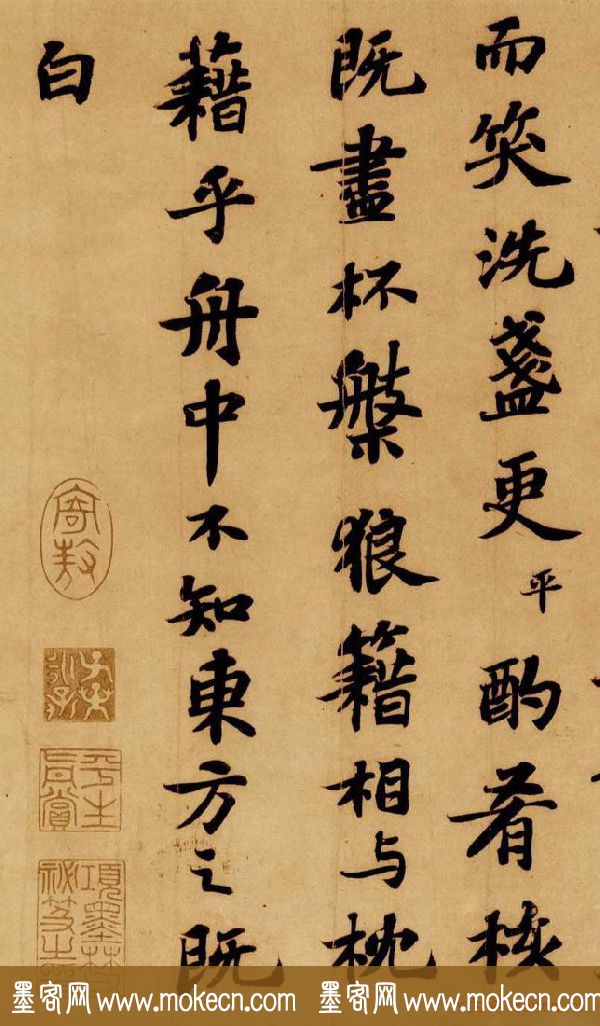 而笑洗盞更平酌肴核
既盡杯槃狼籍相与枕
藉乎舟中不知東方之既
白
寄敖
平生真賞
項墨林祕笈之
墨客网 www.mokecn.com 墨客网 www.mokecn.com